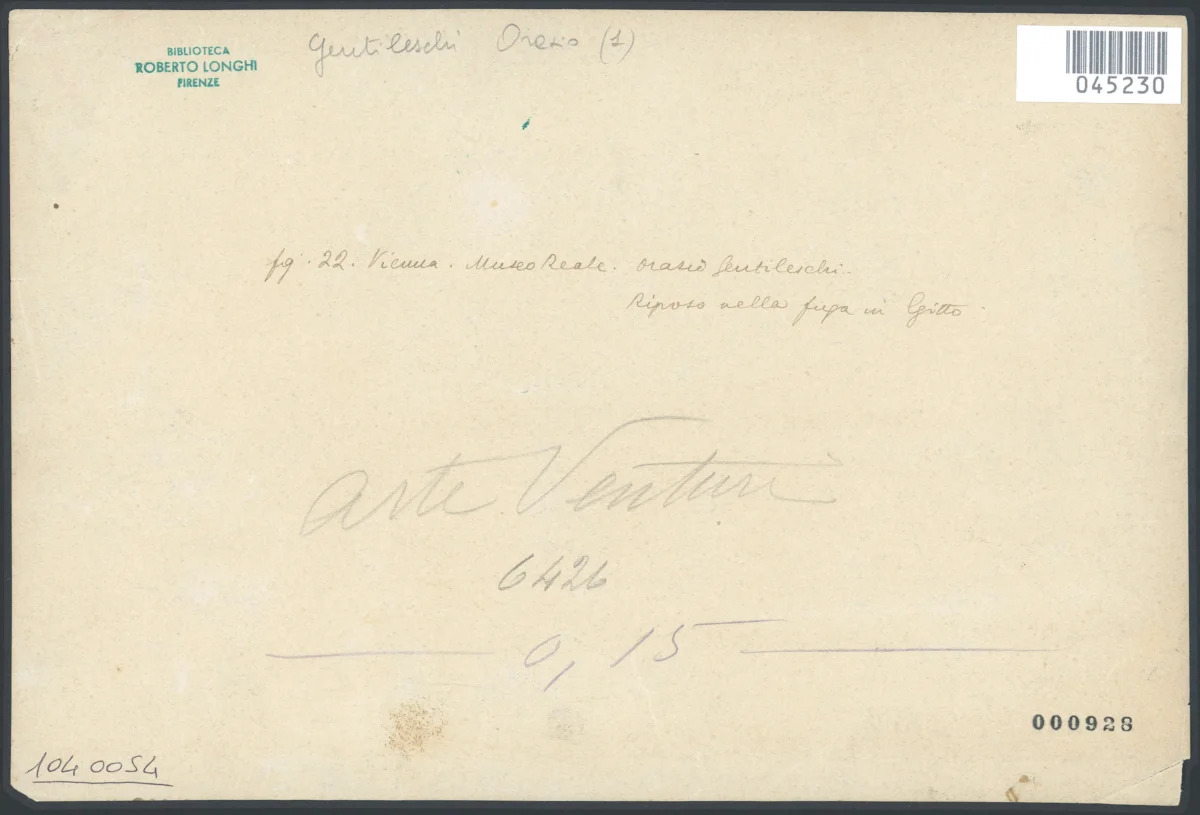 BIBLIOTECA
ROBERTO LONGHI
FIRENZE
Gentileschi Orazio (1)
045230
fig. 22. Vienna. Museo Reale. Orazio Gentileschi.
Riposo nella fuga in Egitto.
Arte Venturi
6426
0,15
000928
1040054